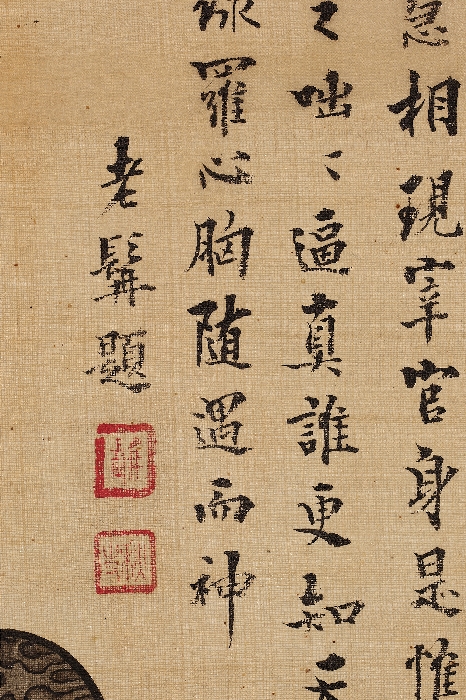 相現宰官身是惟
咄〻逼真誰更知天
羅心胸随遇而神
老髯題